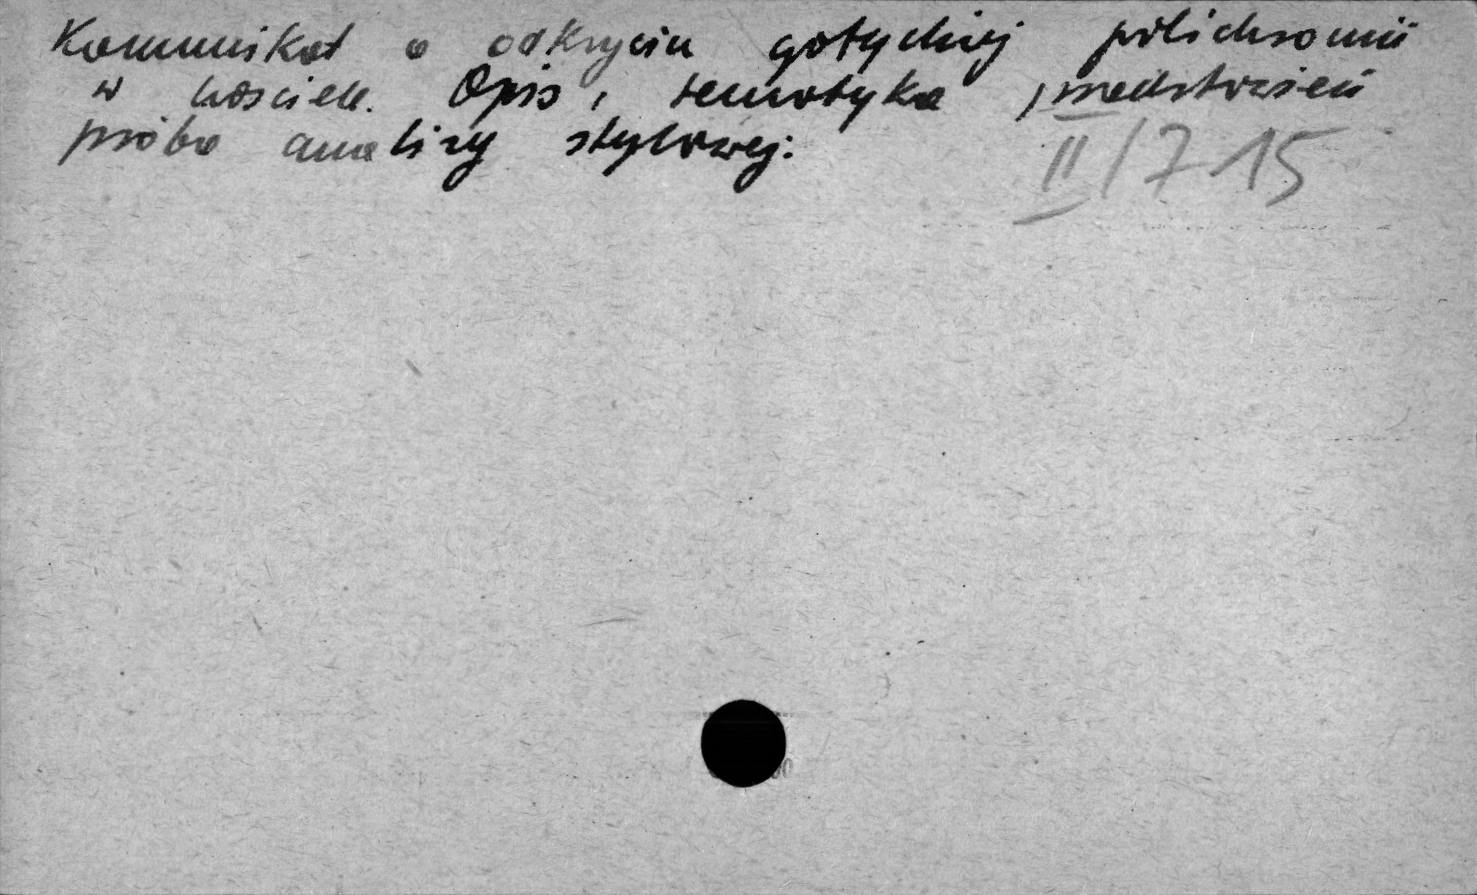 Komunikat o odkryciu gotyckiej polichromii
w kościele. Opis, tematyka przedstawień
próba analizy stylowej.
II/715